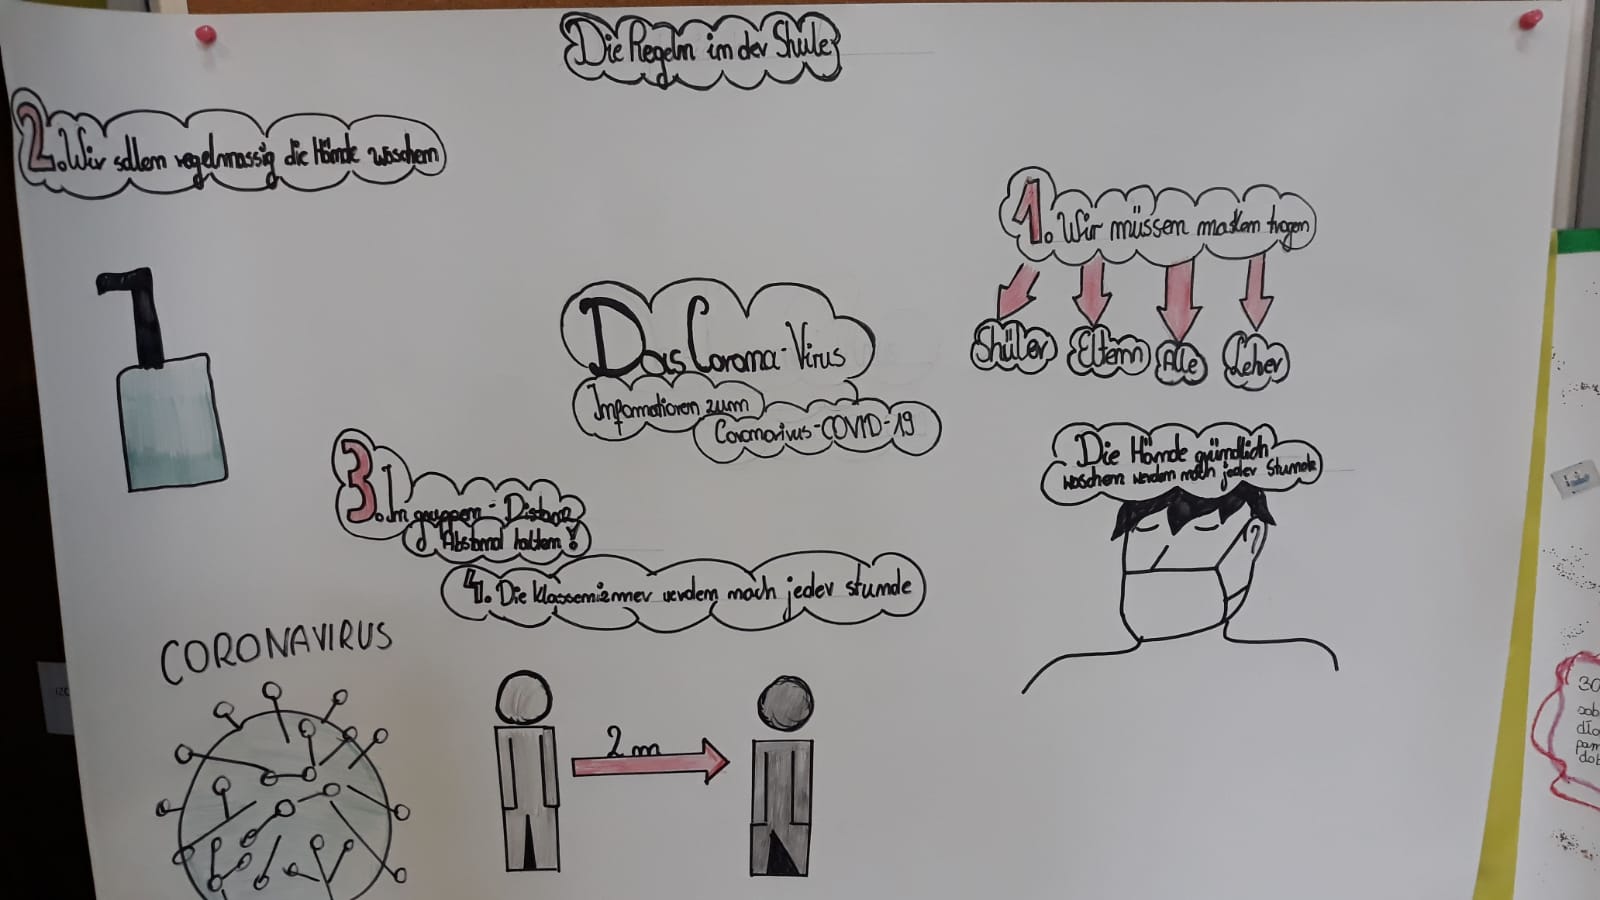 Die Regeln im der Shule
2. Wir sollem regelmassig die Hände waschem
1. Wir müssem masken tragen
Shüler Eltern Alle Leher
Das Corona-Virus
Informationen zum
Coronavirus-COVID-19
Die Hände gründlich
waschen werden nach jeder Stunde
3. In gruppen - Distanz
Abstand halten!
4. Die klassenzimmer werden nach jeder stunde
CORONAVIRUS
2 m
30